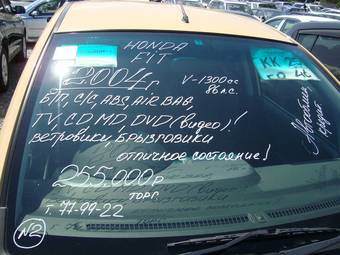 HONDA
FIT
2004г
V-1300cc
86 л.с.
Б/П, С/С, ABS, AIR BAG
TV, CD MD, DVD (видео)!
ветровики, БРЫЗГОВИКИ
отличное состояние!
255.000 р
ТОРГ
т. 77-99-22
N2
КК